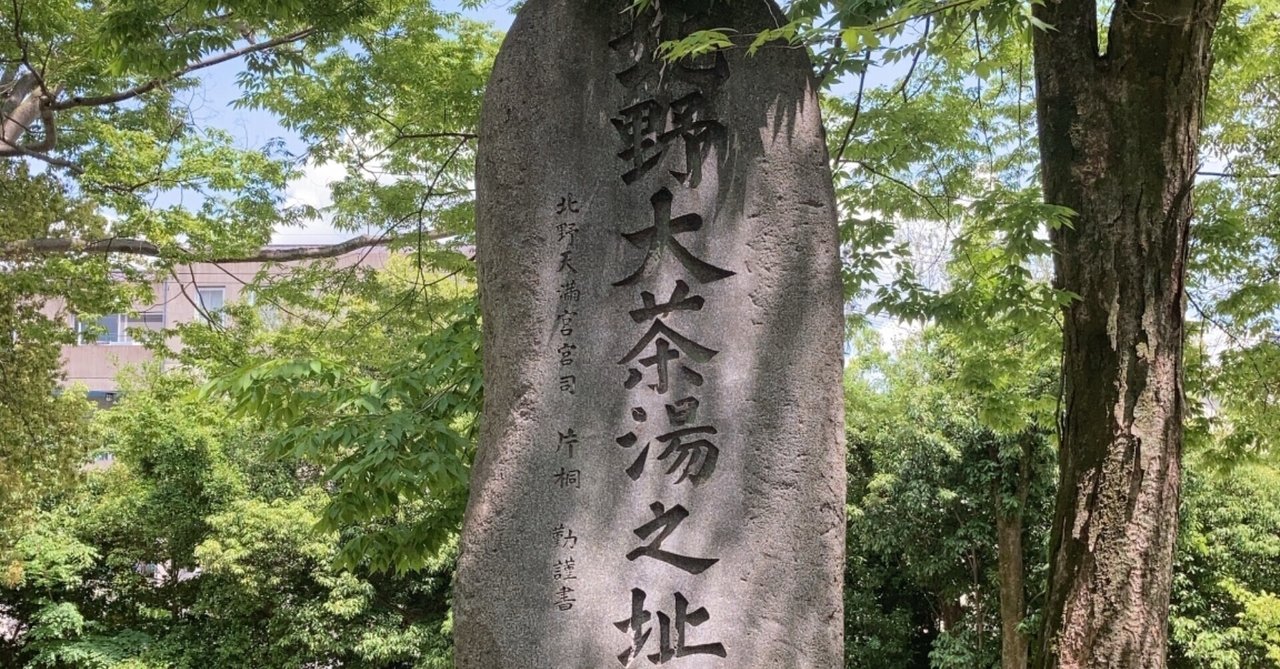 北野大茶湯之址
北野天満宮宮司 片桐 勤謹書